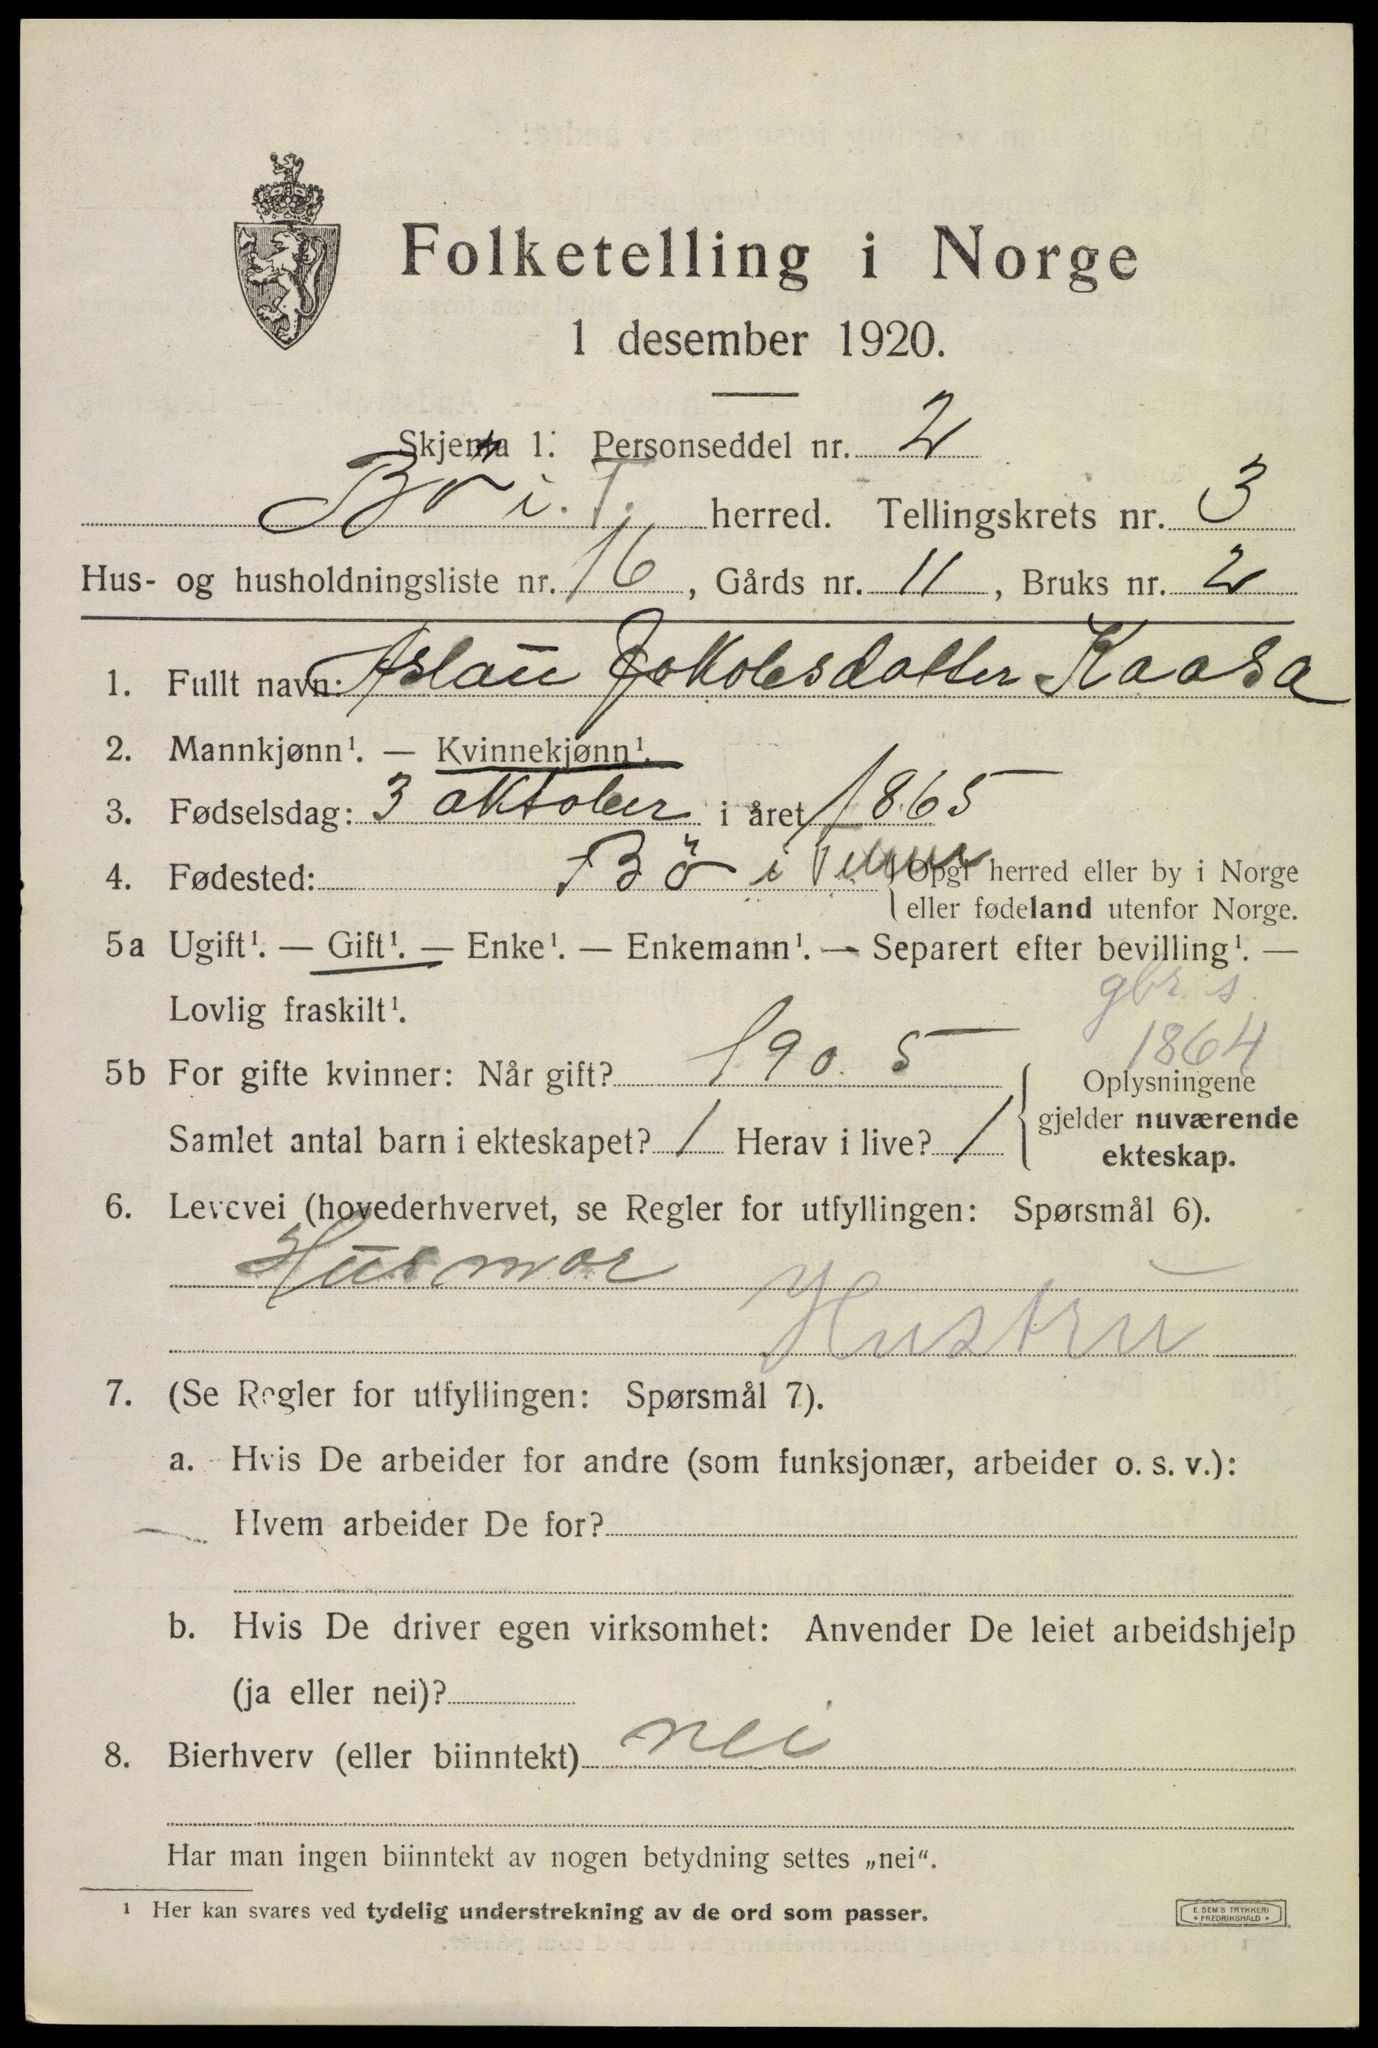 Folketelling i Norge
1 desember 1920.
Skjema 1. Personseddel nr. 2
Bö i. T. herred. Tellingskrets nr. 3
Hus- og husholdningsliste nr. 16, Gårds nr. 11, Bruks nr. 2
1. Fullt navn: Aslaü Jakobsdatter Kaasa
2. Mannkjønn¹. — Kvinnekjønn¹.
3. Fødselsdag: 3 oktober i året 1865
4. Fødested: Bö i Telem Opgi herred eller by i Norge
eller fødeland utenfor Norge.
5a Ugift¹. — Gift¹. — Enke¹. — Enkemann¹. — Separert efter bevilling¹. —
Lovlig fraskilt¹. gbr. s.
1864
5b For gifte kvinner: Når gift? 1905 Oplysningene
gjelder nuværende
Samlet antal barn i ekteskapet? 1 Herav i live? 1 ekteskap.
6. Levevei (hovederhvervet, se Regler for utfyllingen: Spørsmål 6).
Husmor
Hustru
7. (Se Regler for utfyllingen: Spørsmål 7).
a. Hvis De arbeider for andre (som funksjonær, arbeider o. s. v.):
Hvem arbeider De for?
b. Hvis De driver egen virksomhet: Anvender De leiet arbeidshjelp
(ja eller nei)?
8. Bierhverv (eller biinntekt) nei
Har man ingen biinntekt av nogen betydning settes „nei“.
¹ Her kan svares ved tydelig understrekning av de ord som passer.
E. SEM'S TRYKKERI
* FREDRIKSHALD *